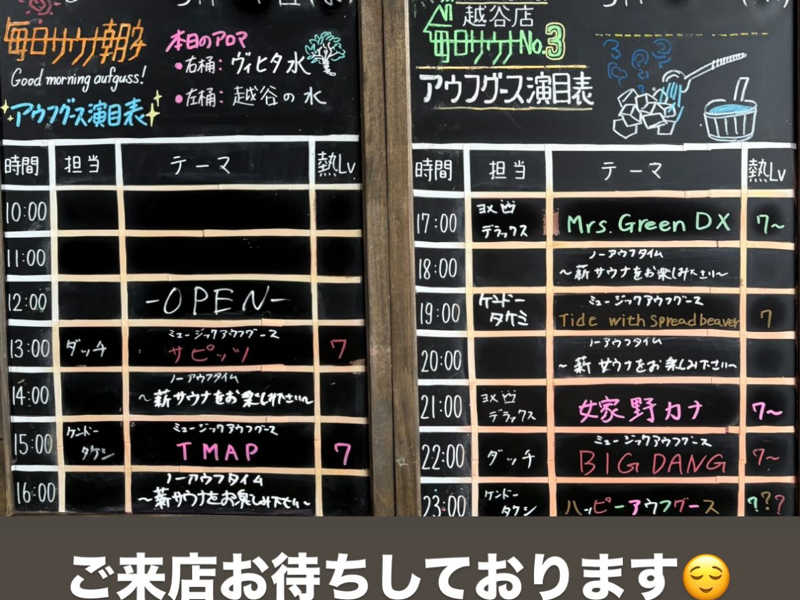 毎日サウナ
Good morning aufguss!
アウフグース演目表
本日のアロマ
・右桶：ヴィヒタ水
・左桶：越谷の水
時間 担当 テーマ 熱Lv
10:00
11:00
12:00 -OPEN-
13:00 ダッチ ミュージックアウフグース
サピッツ 7
14:00 ノーアウフタイム
〜薪サウナをお楽しみ下さい〜
15:00 ケンドー
タケシ ミュージックアウフグース
TMAP 7
16:00 ノーアウフタイム
〜薪サウナをお楽しみ下さい〜
越谷店
毎日サウナNo.3
アウフグース演目表
時間 担当 テーマ 熱Lv
17:00 ヨメ
デラックス Mrs. Green DX 7〜
18:00 ノーアウフタイム
〜薪サウナをお楽しみ下さい〜
19:00 ケンドー
タケミ ミュージックアウフグース
Tide with spread beaver 7
20:00 ノーアウフタイム
〜薪サウナをお楽しみ下さい〜
21:00 ヨメ
デラックス 女家野カナ 7〜
22:00 ダッチ ミュージックアウフグース
BIG DANG 7〜
23:00 ケンドー
タケシ ハッピーアウフグース ???
ご来店お待ちしております😌